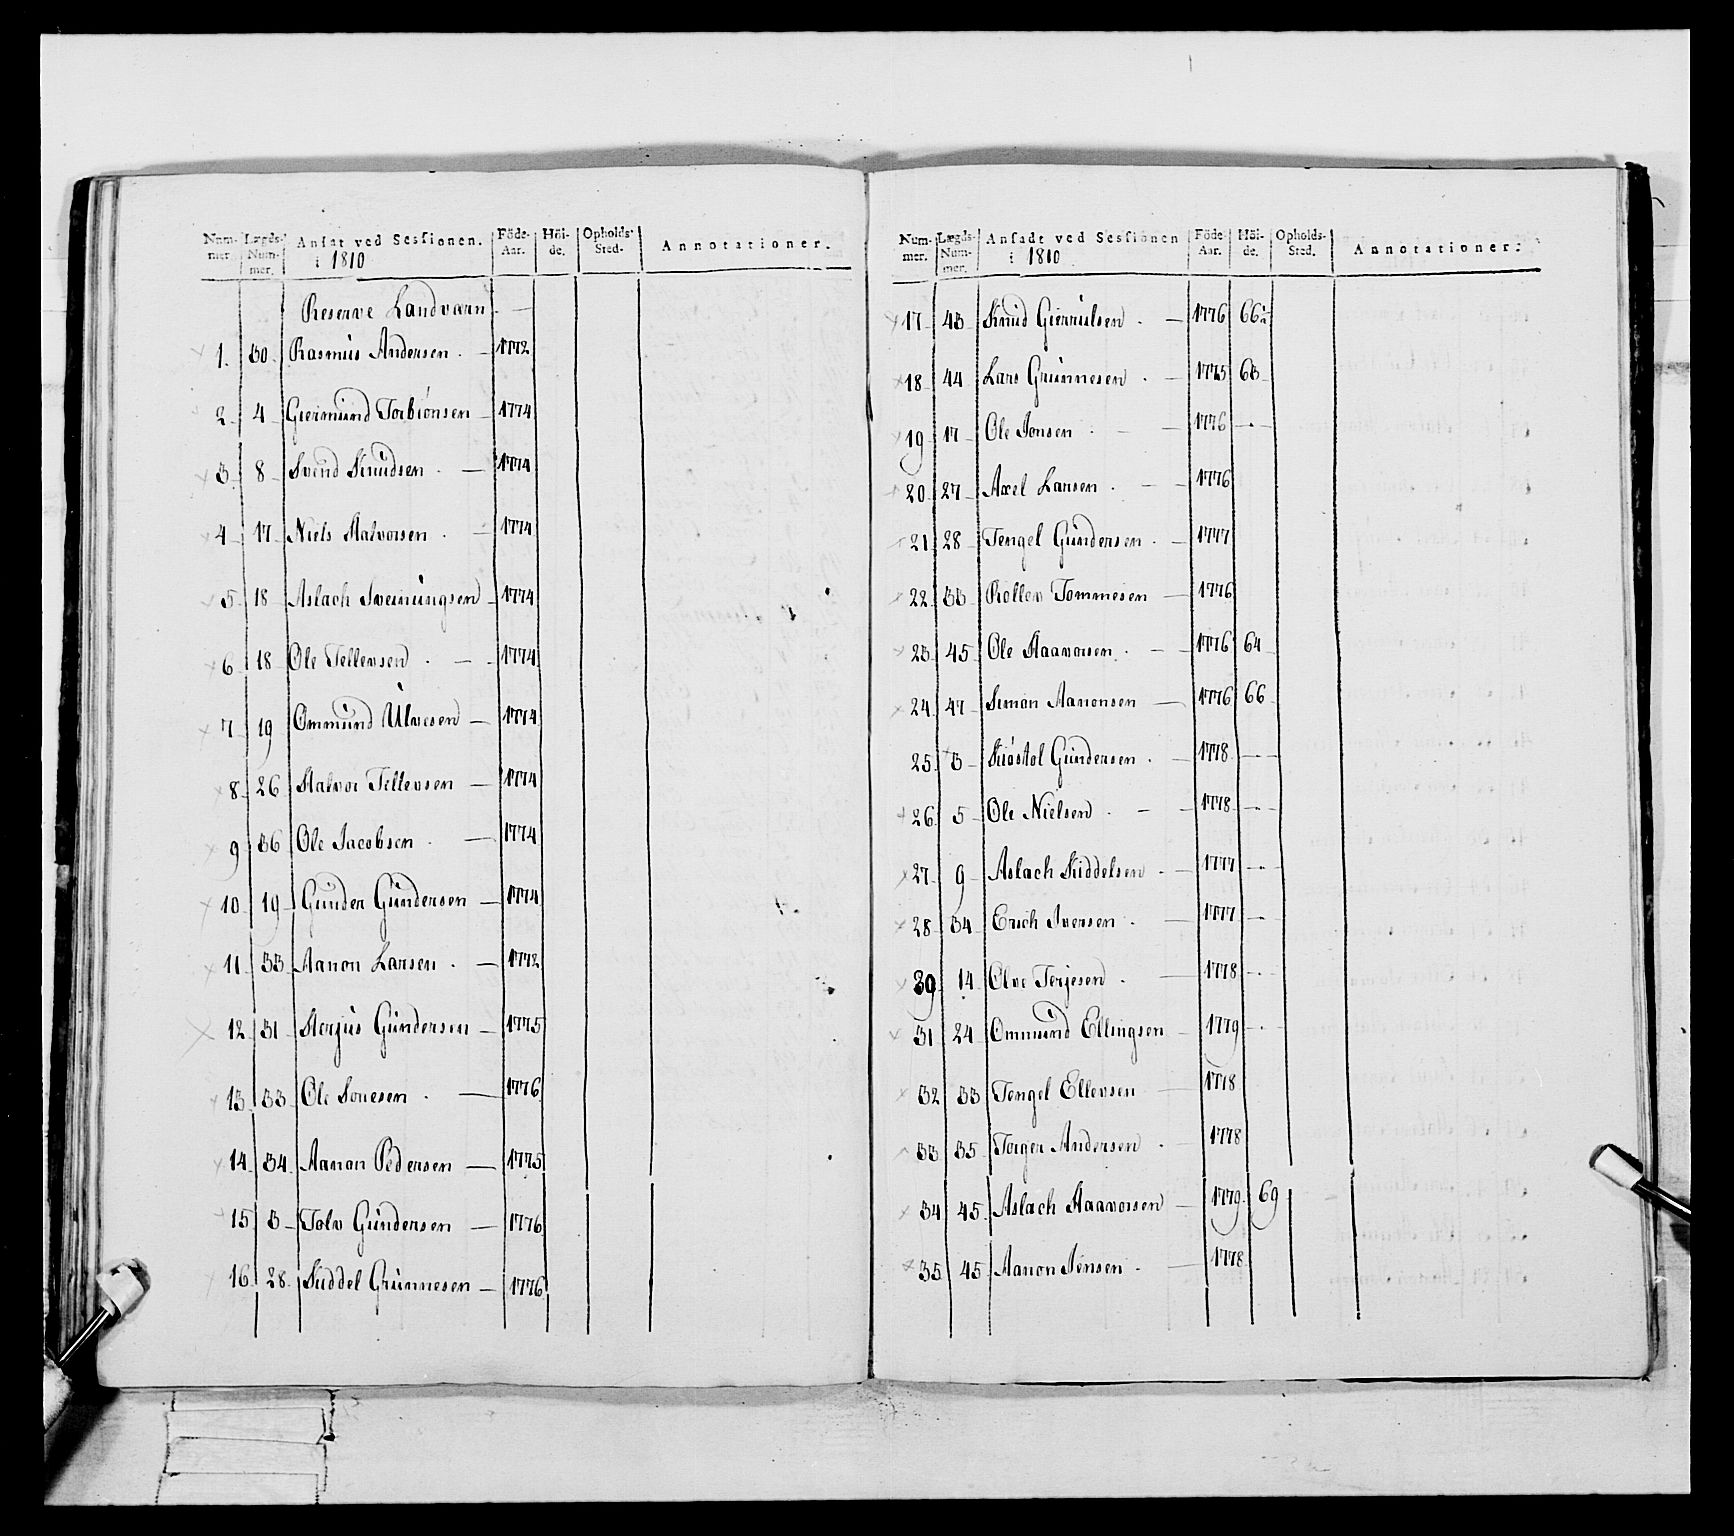 Num-mer. Lægds-Num-mer. Ansat ved Sessionen. i 1810 Föde-Aar. Höi-de. Opholds-Sted. Annotationer.
Reserve Landværn. —
1. 30. Rasmus Andersen. — 1772
2. 4 Giermund Torbiönsen — 1774
3. 8 Svend Knudsen. — 1774
4 17 Niels Halvorsen. — 1774
5. 18 Aslach Sveinungsen — 1774
6. 18 Ole Tellevsen. — 1774
7 19 Ommund Ulvesen — 1774
8. 26 Halvor Tellevsen — 1774
9 36 Ole Jacobsen. — 1774
10 19 Gunder Gundersen — 1774
11. 33 Aanon Larsen. — 1772
12 31 Herjus Gundersen — 1775
13 33 Ole Sonesen. — 1776
14. 34. Aanon Pedersen — 1775
15 3 Tolv Gundersen — 1776
16. 28. Siddel Grunnesen — 1776
Num-mer. Lægds-Num-mer. Ansadt ved Sessionen i 1810 Föde-Aar. Höi-de. Opholds-Sted. Annotationer.
17 43 Knud Gierrulsen. — 1776 66½
18 44 Lars Grunnesen. — 1775 63
19 17 Ole Jonsen. — 1776 —.—
20 27 Axel Larsen. — 1776
21 28 Tengel Gundersen. — 1777
22 33 Rollev Tommesen — 1776
23 45 Ole Haavorsen. — 1776 64
24 47 Simon Aanonsen — 1776 66
25. 3 Kiöstol Gundersen. — 1778 —.—
26 5 Ole Nielsen. — 1778 —.—
27 9 Aslach Siddelsen. — 1777 —.—
28 34 Erich Iversen. — 1777 —.—
30 14 Olve Terjesen. — 1778 —.—
31 24 Ommund Ellingsen — 1779 —.—
32 33 Tengel Ellevsen — 1778
33 35 Torger Andersen. — 1778
34 45. Aslach Haavorsen — 1779. 69
35 45 Aanon Jensen. — 1778